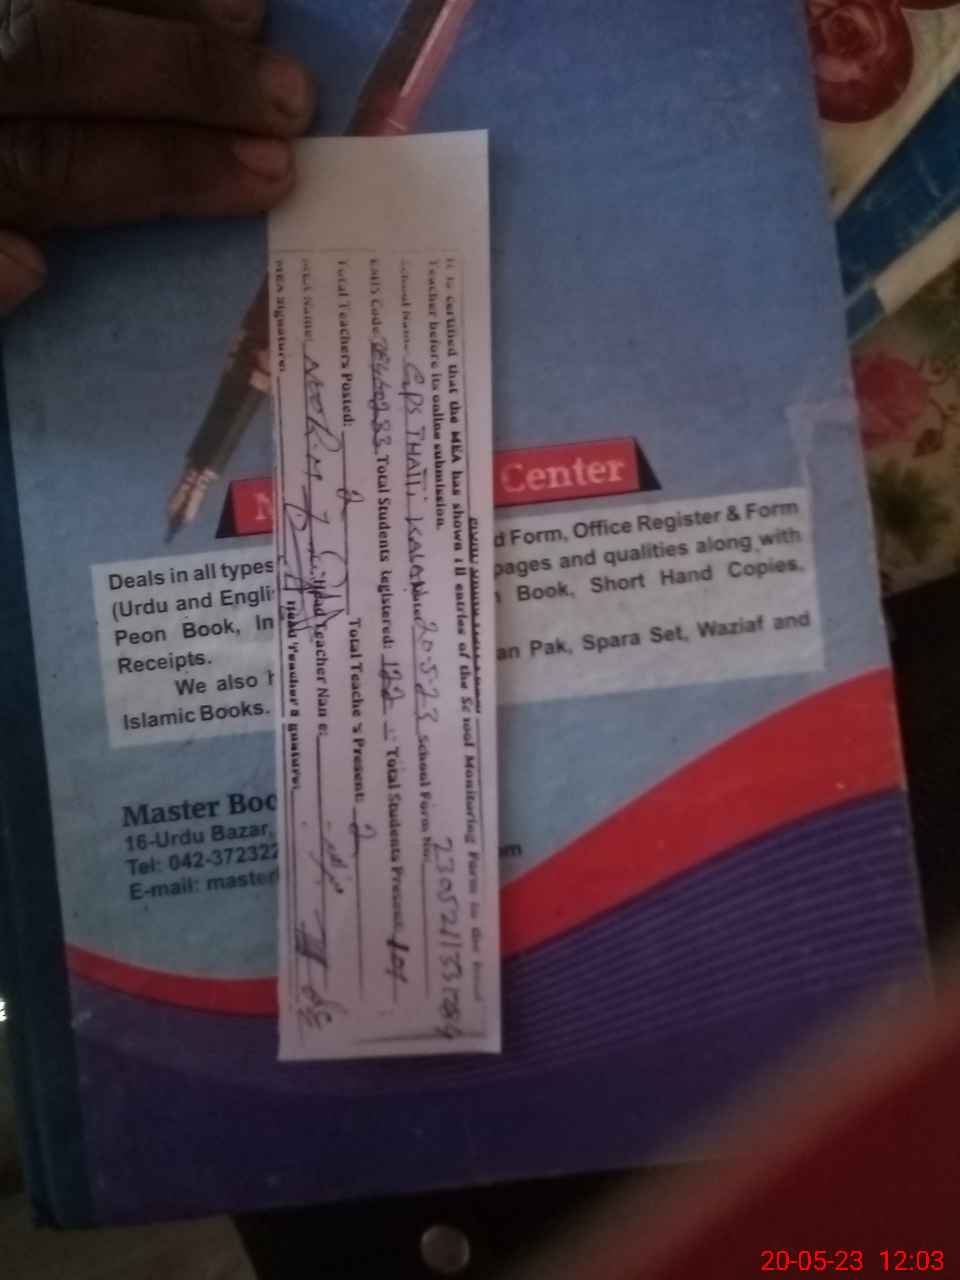 It is certified that the MEA has shown all entries of the School Monitoring Form to the Head
Teacher before its online submission.
School Name GPS THATTI KALAN Date: 20-5-23 School Form No:
EMIS Code Total Students Registered: 122 Total Students Present: 101
Total Teachers Posted: 2 Total Teachers Present: 2
MEA Name: Head Teacher Name:
MEA Signature: Head Teacher Signature:
Center
Deals in all types
d Form, Office Register & Form
(Urdu and Engli
pages and qualities along with
Peon Book, In
Book, Short Hand Copies,
Receipts.
an Pak, Spara Set, Waziaf and
We also h
Islamic Books.
Master Boo
16-Urdu Bazar,
Tel: 042-37232
E-mail: master
om
20-05-23 12:03